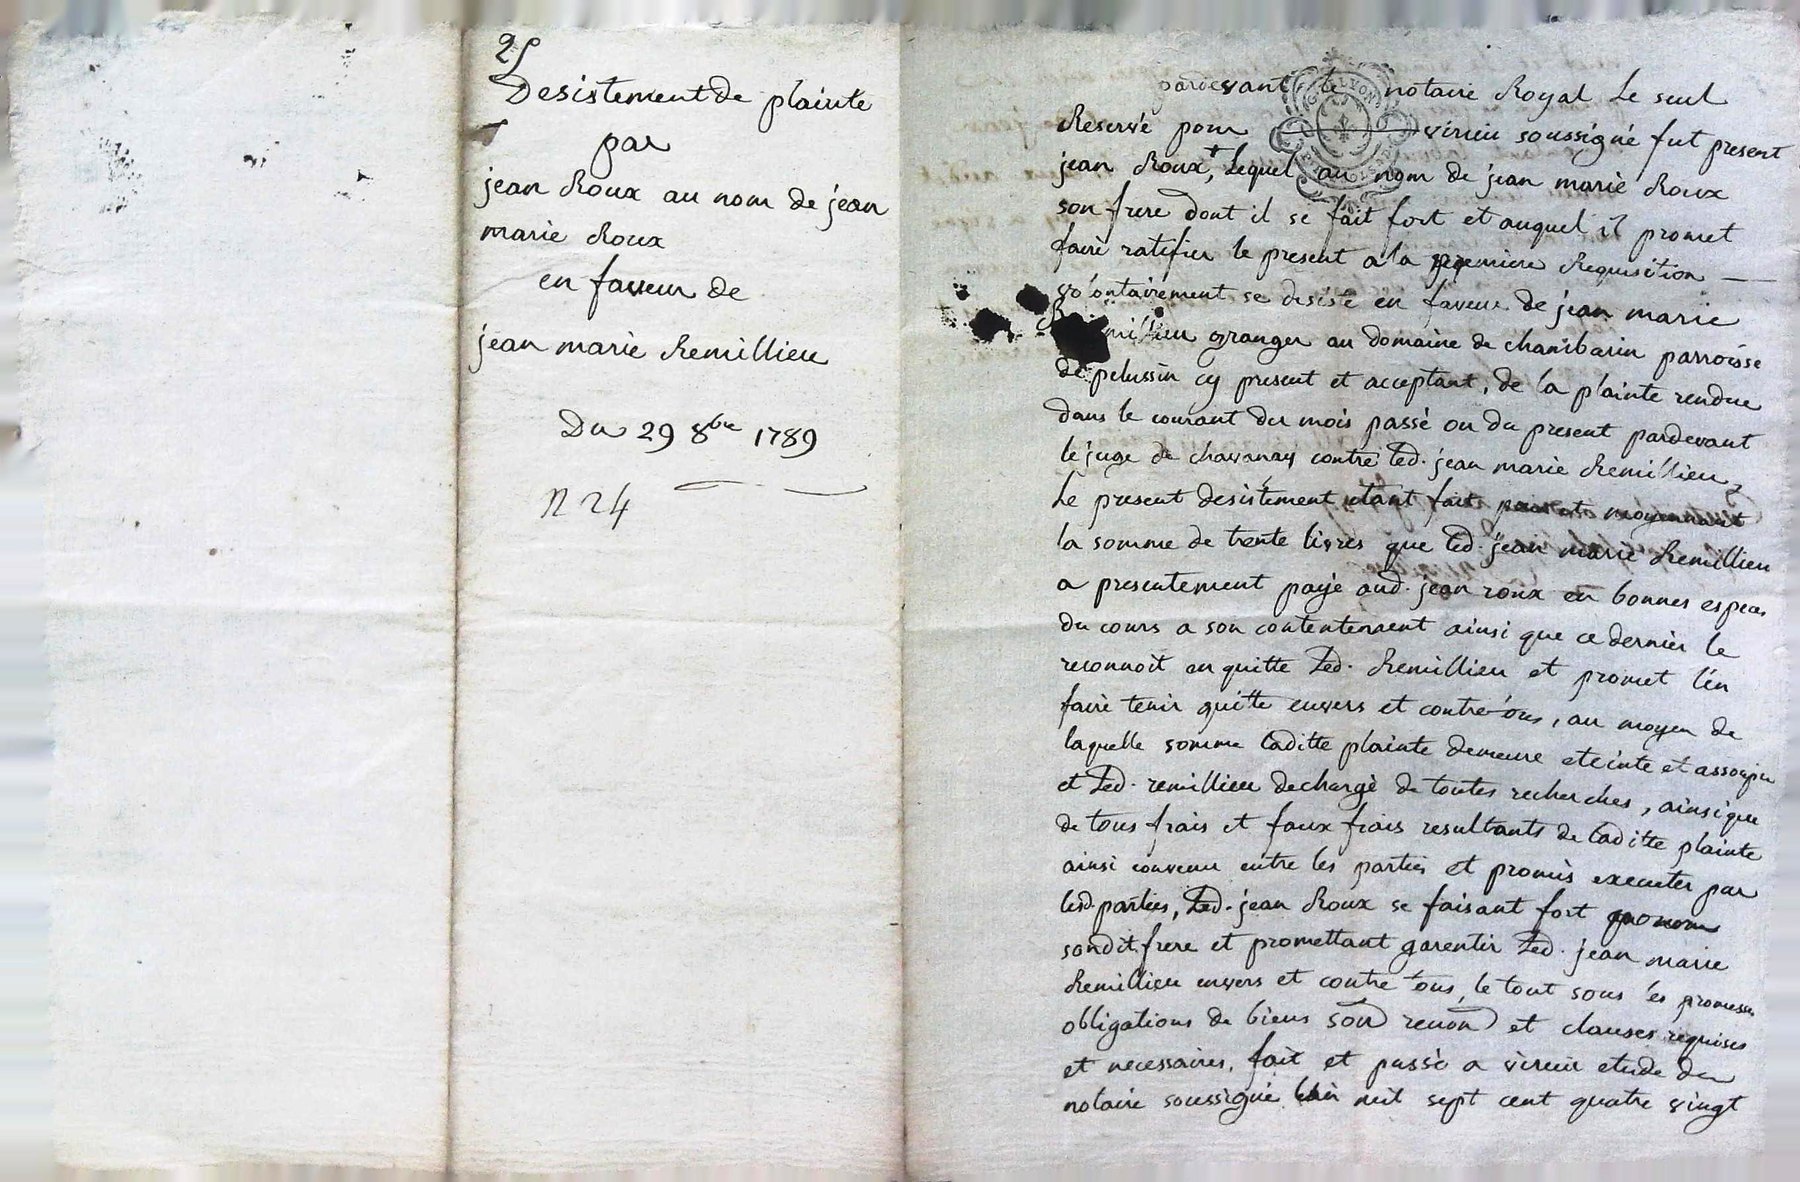 2
Desistement de plainte
par
jean Roux au nom de jean
marie Roux
en faveur de
jean marie Remillieu
Du 29 8bre 1789
N 24
pardevant le notaire Royal Le seul
Reservé pour virieu soussigné fut present
jean Roux+, Lequel au nom de jean marie Roux
son frere dont il se fait fort et auquel il promet
faire ratifier le present a la premiere Requisition
volontairement se desiste en faveur de jean marie
Remillieu granger au domaine de chambarin parroisse
de pelussin cy present et acceptant, de la plainte rendue
dans le courant du mois passé ou du present pardevant
le juge de chavanay contre led. jean marie Remillieu,
Le present desistement etant fait moyennant
la somme de trente livres que led. jean marie Remillieu
a presentement payé aud. jean roux en bonnes especes
du cours a son contentement ainsi que ce dernier le
reconnoit en quitte Led. Remillieu et promet l'en
faire tenir quitte envers et contre tous, au moyen de
laquelle somme laditte plainte demeure eteinte et assoupie
et Led. remillieu dechargé de toutes recherches, ainsi que
de tous frais et faux frais resultants de laditte plainte
ainsi convenu entre les parties et promis executer par
lesd. parties, Led. jean Roux se faisant fort
sondit frere et promettant garentir Led. jean marie
Remillieu envers et contre tous, le tout sous les promesses
obligations de biens soud renond et clauses requises
et necessaires, fait et passé a virieu etude du
notaire soussigné mil sept cent quatre vingt